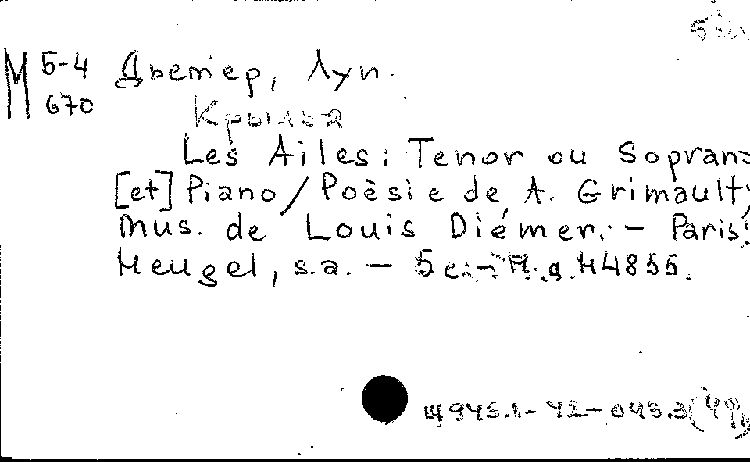 М 5-4 Дьемер, Луи.
670
Крылья
Les Ailes: Tenor ou Soprano
[et] Piano / Poèsie de A. Grimault;
mus. de Louis Diémer. – Paris:
Heugel, s.a. – 5 c. –
Щ 945.1-42-